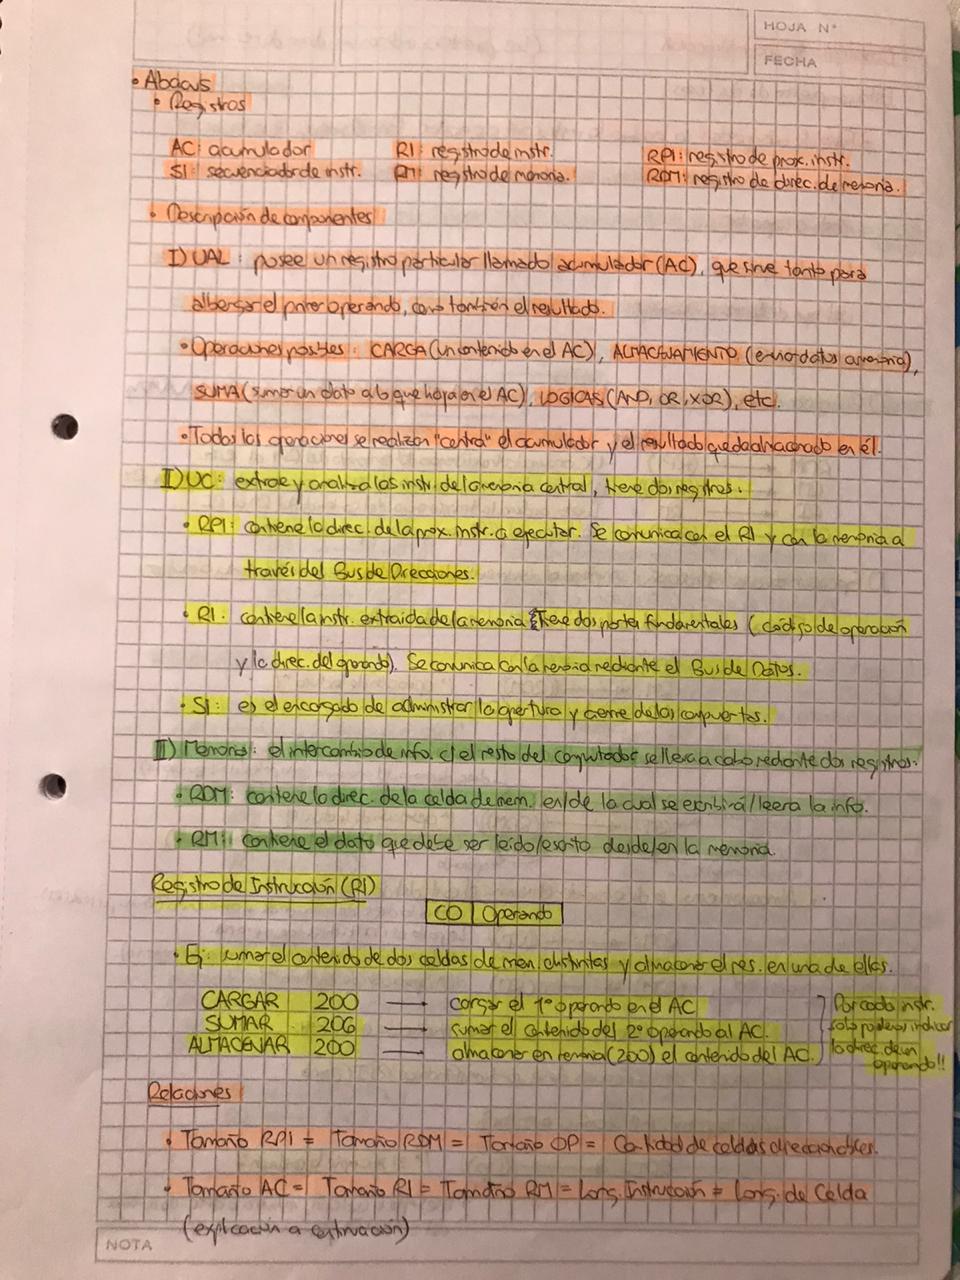 HOJA N°
FECHA
• Abacus
• Registros
AC: acumulador RI: registro de instr. RPI: registro de prox. instr.
SI: secuenciador de instr. RM: registro de memoria. RDM: registro de direc. de memoria.
• Descripción de componentes:
I) UAL: posee un registro particular llamado acumulador (AC), que sirve tanto para
albergar el primer operando, como también el resultado.
• Operaciones posibles: CARGA (un contenido en el AC), ALMACENAMIENTO (enviar datos a memoria),
SUMA (sumar un dato a lo que haya en el AC), LOGICAS (AND, OR, XOR), etc.
• Todas las operaciones se realizan "contra" el acumulador y el resultado queda almacenado en él.
II) UC: extrae y analiza las instr. de la memoria central, tiene dos registros.
• RPI: contiene la direc. de la prox. instr. a ejecutar. Se comunica con el RI y con la memoria a
través del Bus de Direcciones.
• RI: contiene la instr. extraída de la memoria. Tiene dos partes fundamentales (código de operación
y la direc. del operando). Se comunica con la memoria mediante el Bus de Datos.
• SI: es el encargado de administrar la apertura y cierre de las compuertas.
III) Memoria: el intercambio de info. c/ el resto del computador se lleva a cabo mediante dos registros.
• RDM: contiene la direc. de la celda de mem. en/de la cual se escribirá/leera la info.
• RM: contiene el dato que debe ser leido/escrito desde/en la memoria.
Registro de Instrucción (RI)
CO Operando
• Ej: sumar el contenido de dos celdas de mem distintas y almacenar el res. en una de ellas.
CARGAR 200 → cargar el 1° operando en el AC
SUMAR 206 → sumar el contenido del 2° operando al AC.
ALMACENAR 200 → almacenar en memoria (200) el contenido del AC.
Por cada instr.
solo podemos indicar
la direc. de un
operando!!
Relaciones
• Tamaño RPI = Tamaño RDM = Tamaño OP = Cantidad de celdas direccionables.
• Tamaño AC = Tamaño RI = Tamaño RM = Long. Instrucción = Long. de Celda
(explicación a continuación)
NOTA